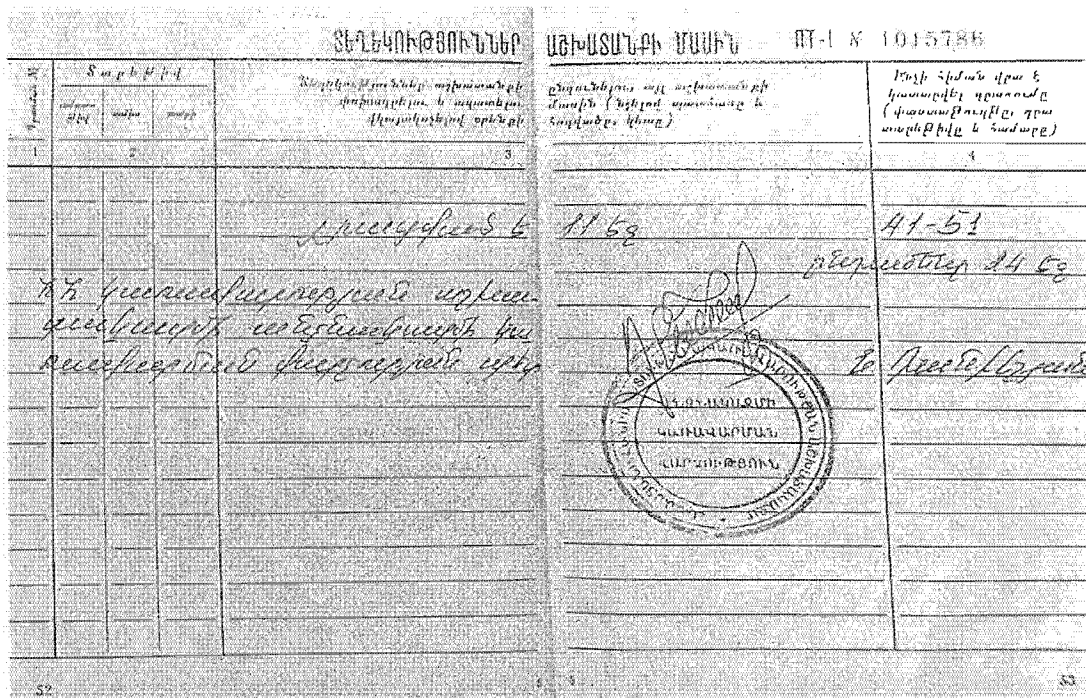 ՏԵՂԵԿՈՒԹՅՈՒՆՆԵՐ ԱՇԽԱՏԱՆՔԻ ՄԱՍԻՆ ՊՏ-I № 1015786
Տարեթիվ
ամսա-
թիվ ամիս տարի
Տեղեկություններ աշխատանքի ընդունելու, այլ աշխատանքի
փոխադրելու և ազատելու մասին (նշելով պատճառը և
վկայակոչելով օրենքի հոդվածը, կետը)
Ինչի հիման վրա է
կատարվել գրառումը
(փաստաթուղթը, դրա
տարեթիվը և համարը)
1 2 3 4
Լրացված է 11 էջ 41-51
24 էջ
ՀՀ կառավարության աշխա-
տակազմի անձնակազմի կա
ռավարման վարչության պետ
ԱՆՁՆԱԿԱԶՄԻ
ԿԱՌԱՎԱՐՄԱՆ
ՎԱՐՉՈՒԹՅՈՒՆ
52 53